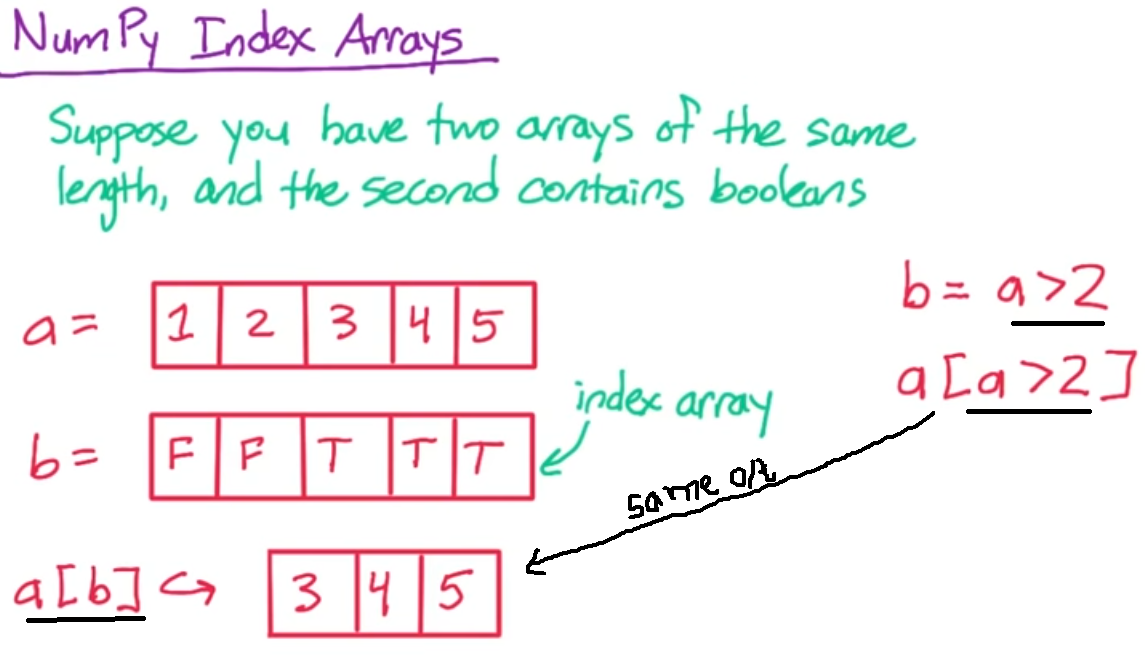 NumPy Index Arrays
Suppose you have two arrays of the same
length, and the second contains booleans
a = 1 2 3 4 5
b = a>2
a[a>2]
index array
b = F F T T T
same o/t
a[b] ↪ 3 4 5